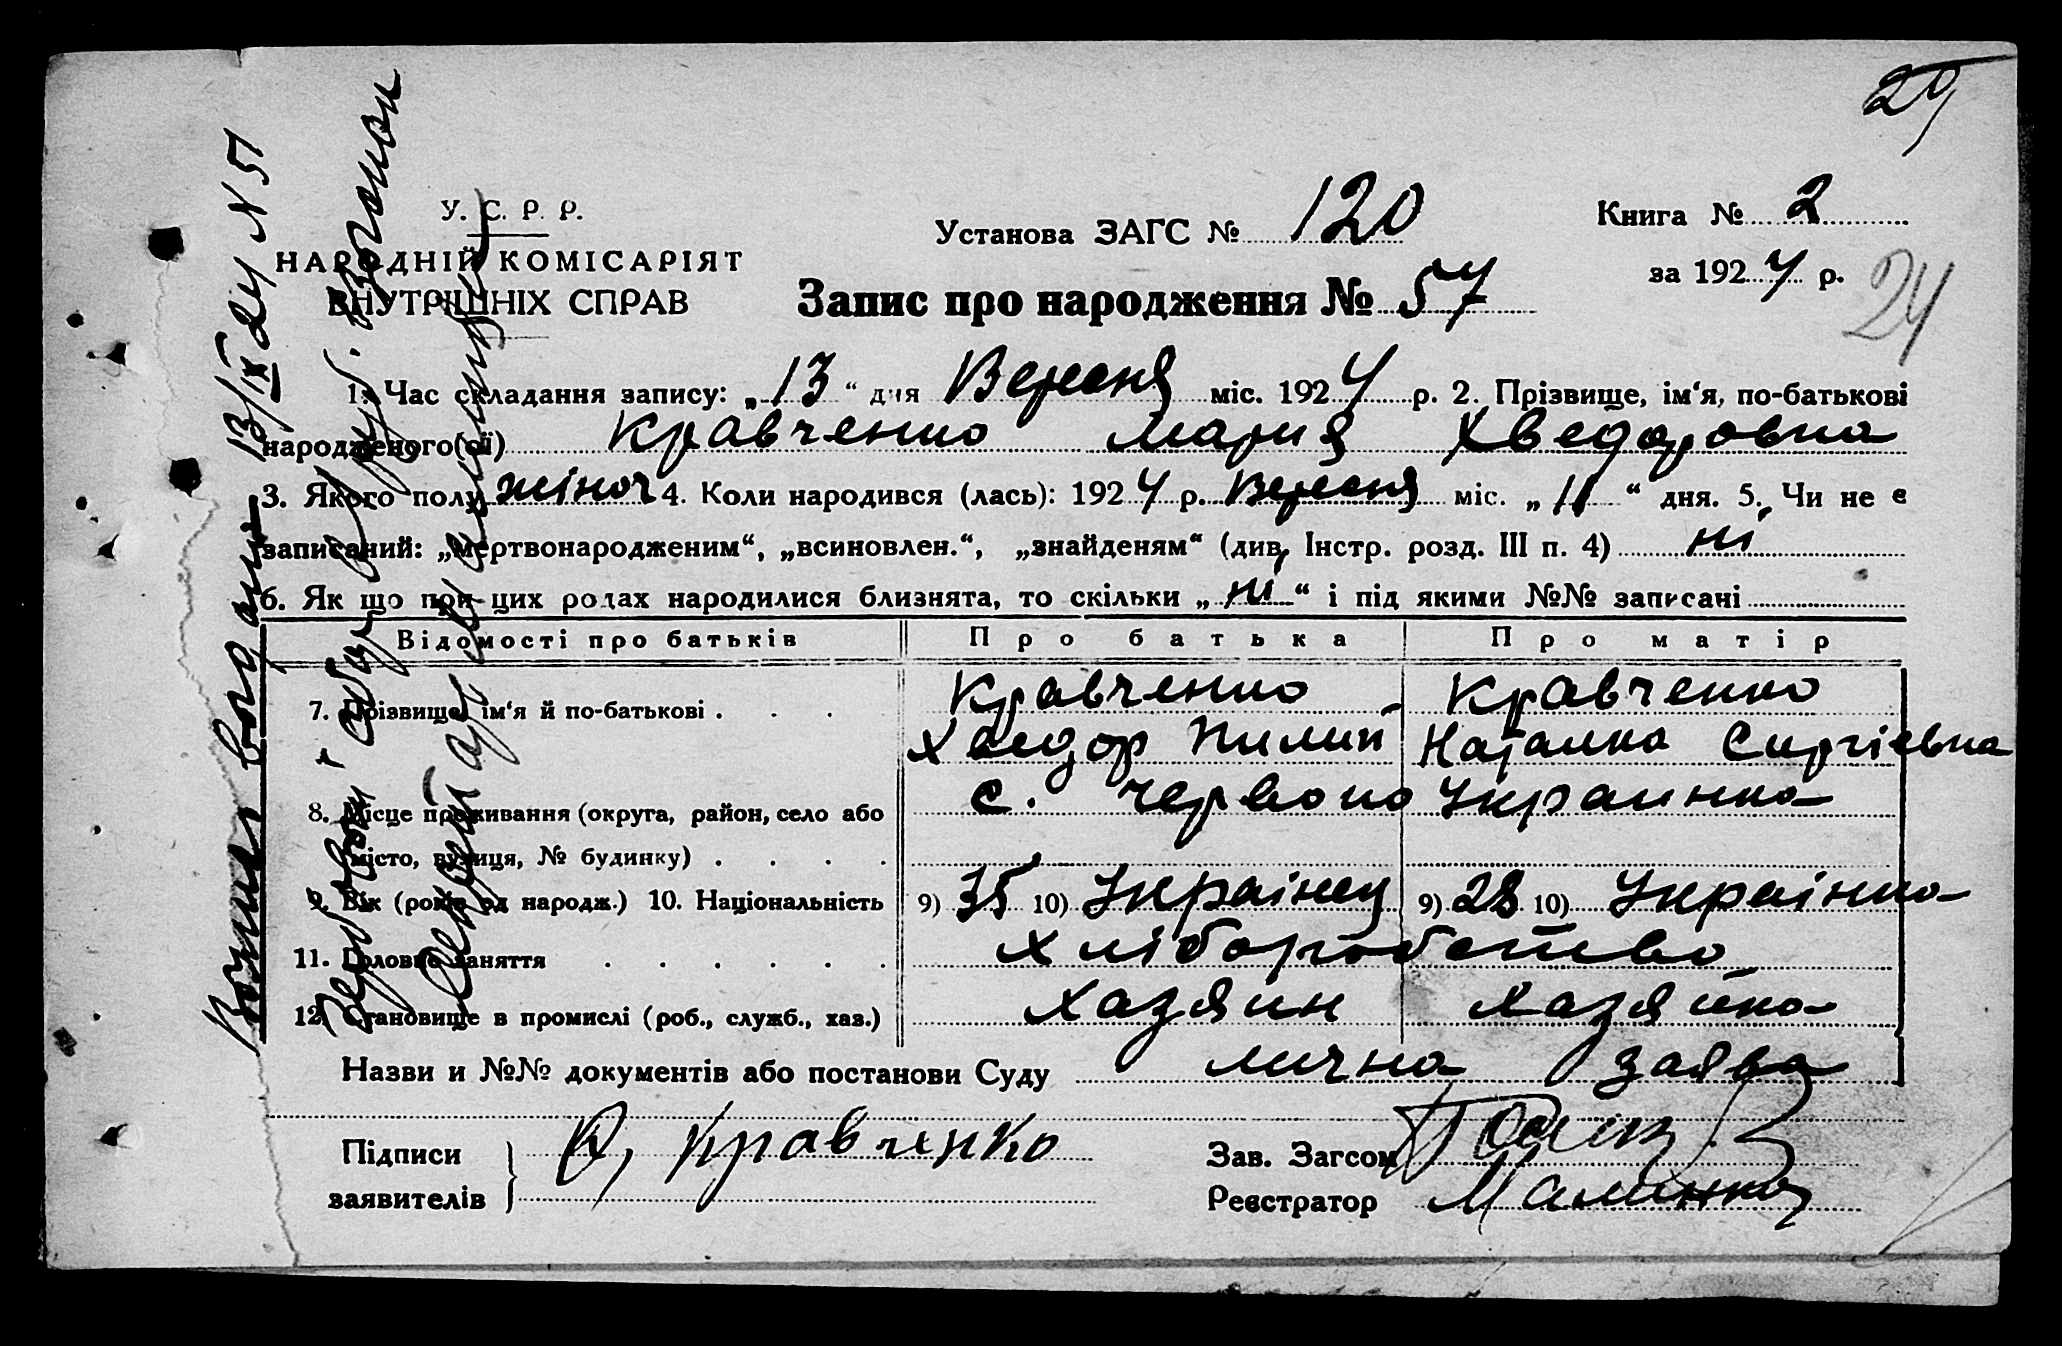 29
У. С. Р. Р.
НАРОДНІЙ КОМІСАРІЯТ
ВНУТРІШНІХ СПРАВ
Установа ЗАГС № 120
Книга № 2
за 1924 р.
24
Запис про народження № 57
1. Час складання запису: „13“ дня Вересня міс. 1924 р. 2. Прізвище, ім‘я, по-батькові
народженого(ої) Кравченко Мария Хведоровна
3. Якого полу жіноч 4. Коли народився (лась): 1924 р. Вересня міс. „11“ дня. 5. Чи не є
записаний: „мертвонародженим“, „всиновлен.“, „знайденям“ (див. Інстр. розд. III п. 4) ні
6. Як що при цих родах народилися близнята, то скільки „ні“ і під якими №№ записані
Відомості про батьків Про батька Про матір
7. Прізвище, ім‘я й по-батькові . . . . Кравченко Кравченко
Хведор Пилип Наталка Сиргієвна
8. Місце проживання (округа, район, село або с. Червоно Украинка
місто, вулиця, № будинку) . . . .
9. Вік (років од народж.) 10. Національність 9) 35 10) Українец 9) 28 10) Українка
11. Головне заняття . . . . . . Хліборобство
12. Становище в промислі (роб., служб., хаз.) Хазяин Хазяйка
Назви и №№ документів або постанови Суду лична заява
Підписи
заявителів
Кравченко
Зав. Загсом
Реєстратор
13/IX 24 N 57